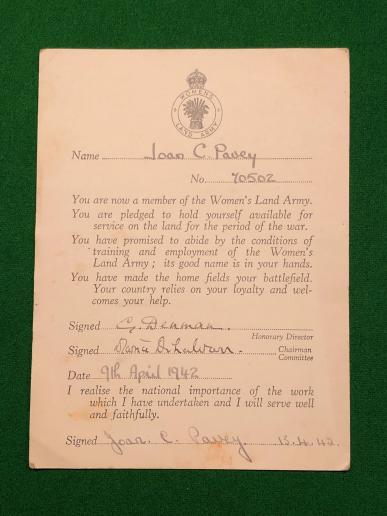 WOMEN'S
LAND ARMY
Name Joan C. Pavey
No. 70502
You are now a member of the Women's Land Army.
You are pledged to hold yourself available for
service on the land for the period of the war.
You have promised to abide by the conditions of
training and employment of the Women's
Land Army; its good name is in your hands.
You have made the home fields your battlefield.
Your country relies on your loyalty and wel-
comes your help.
Signed G. Denman.
Honorary Director
Signed
Chairman
Committee
Date 9th April 1942
I realise the national importance of the work
which I have undertaken and I will serve well
and faithfully.
Signed Joan. C. Pavey 15.4.42.